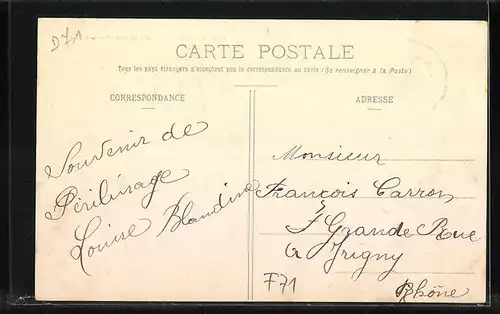 D71
CARTE POSTALE
Tous les pays étrangers n'acceptent pas la correspondance au recto (Se renseigner à la Poste)
CORRESPONDANCE
ADRESSE
Souvenir de
Pèrilinage
Louise Blandine
Monsieur
François Carron
Grande Rue
à Irigny
Rhône
F71